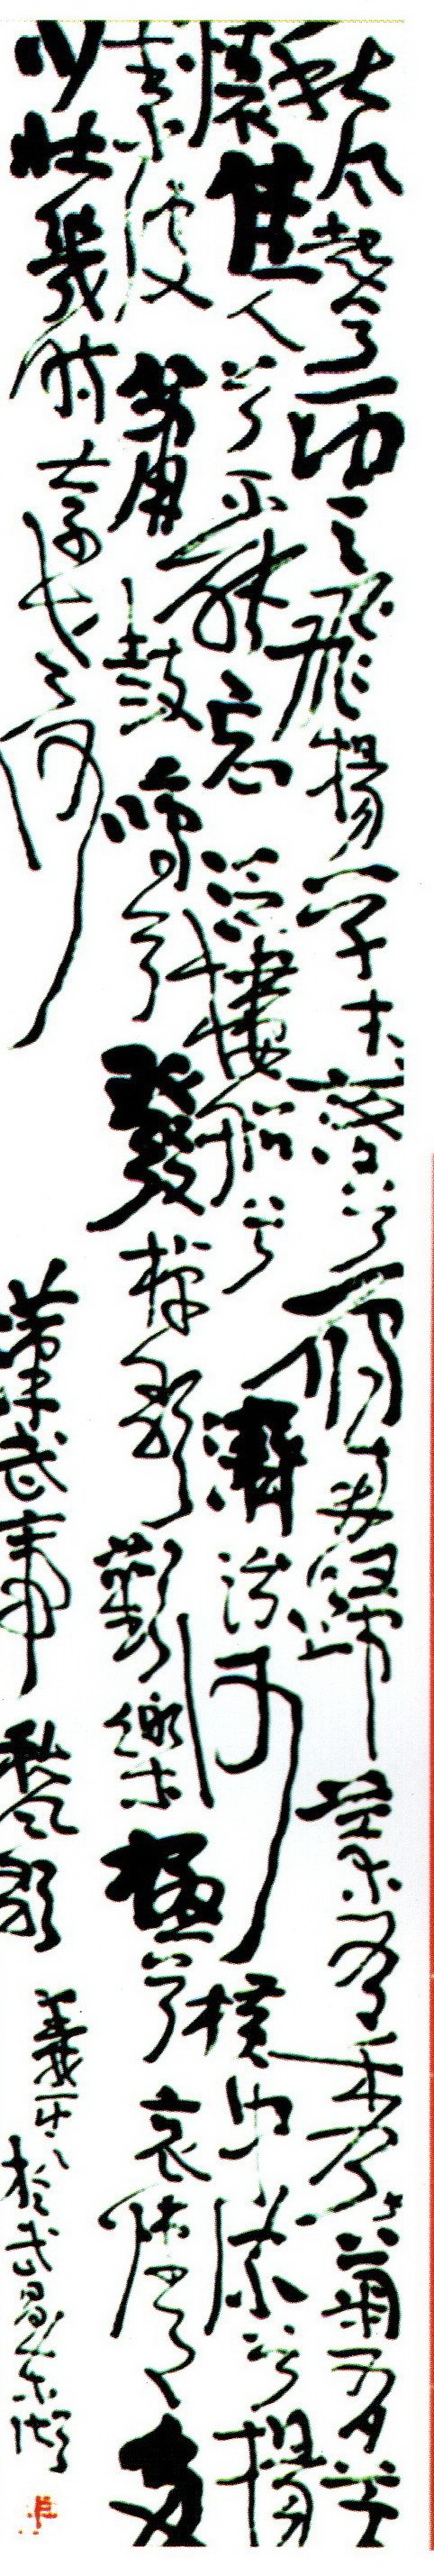 秋风起兮白云飛揚草木落兮雁南歸蘭有秀兮菊有芳
懷佳人兮不能忘泛樓船兮濟汾河橫中流兮揚
素波簫鼓鳴兮發棹歌歡樂極兮哀情多
少壯幾時奈老何
漢武帝秋风歌
義平於武昌东湖